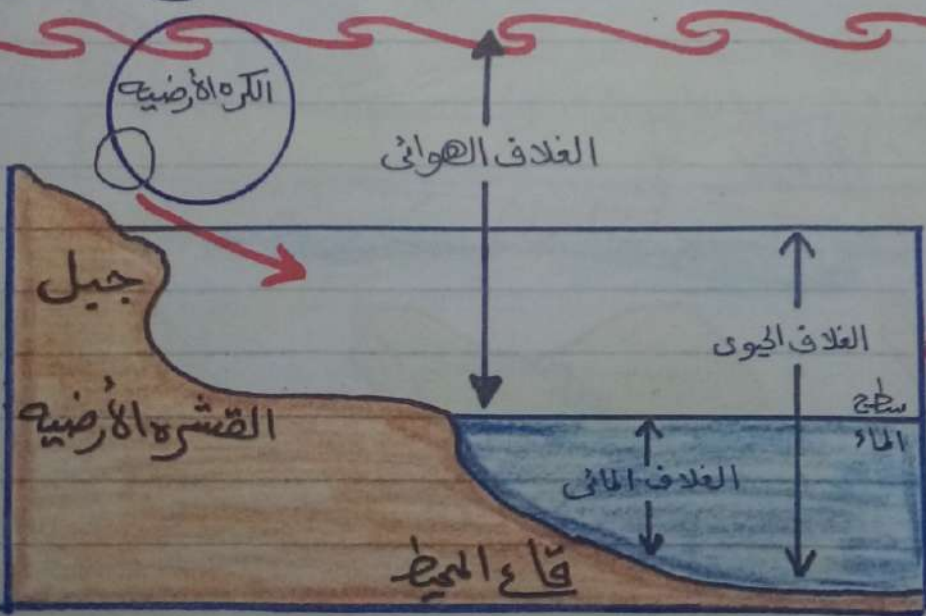 الكره الأرضيه
الغلاف الهوائى
جبل
الغلاف الحيوى
القشره الأرضيه
سطح
الماء
الغلاف المائى
قاع المحيط